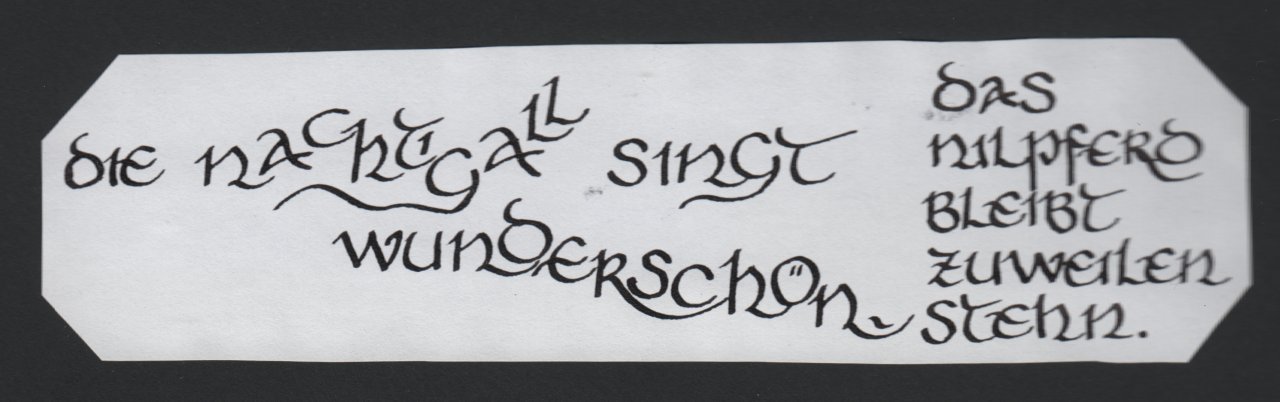 die nachtigall singt
wunderschön.
das
nilpferd
bleibt
zuweilen
stehn.